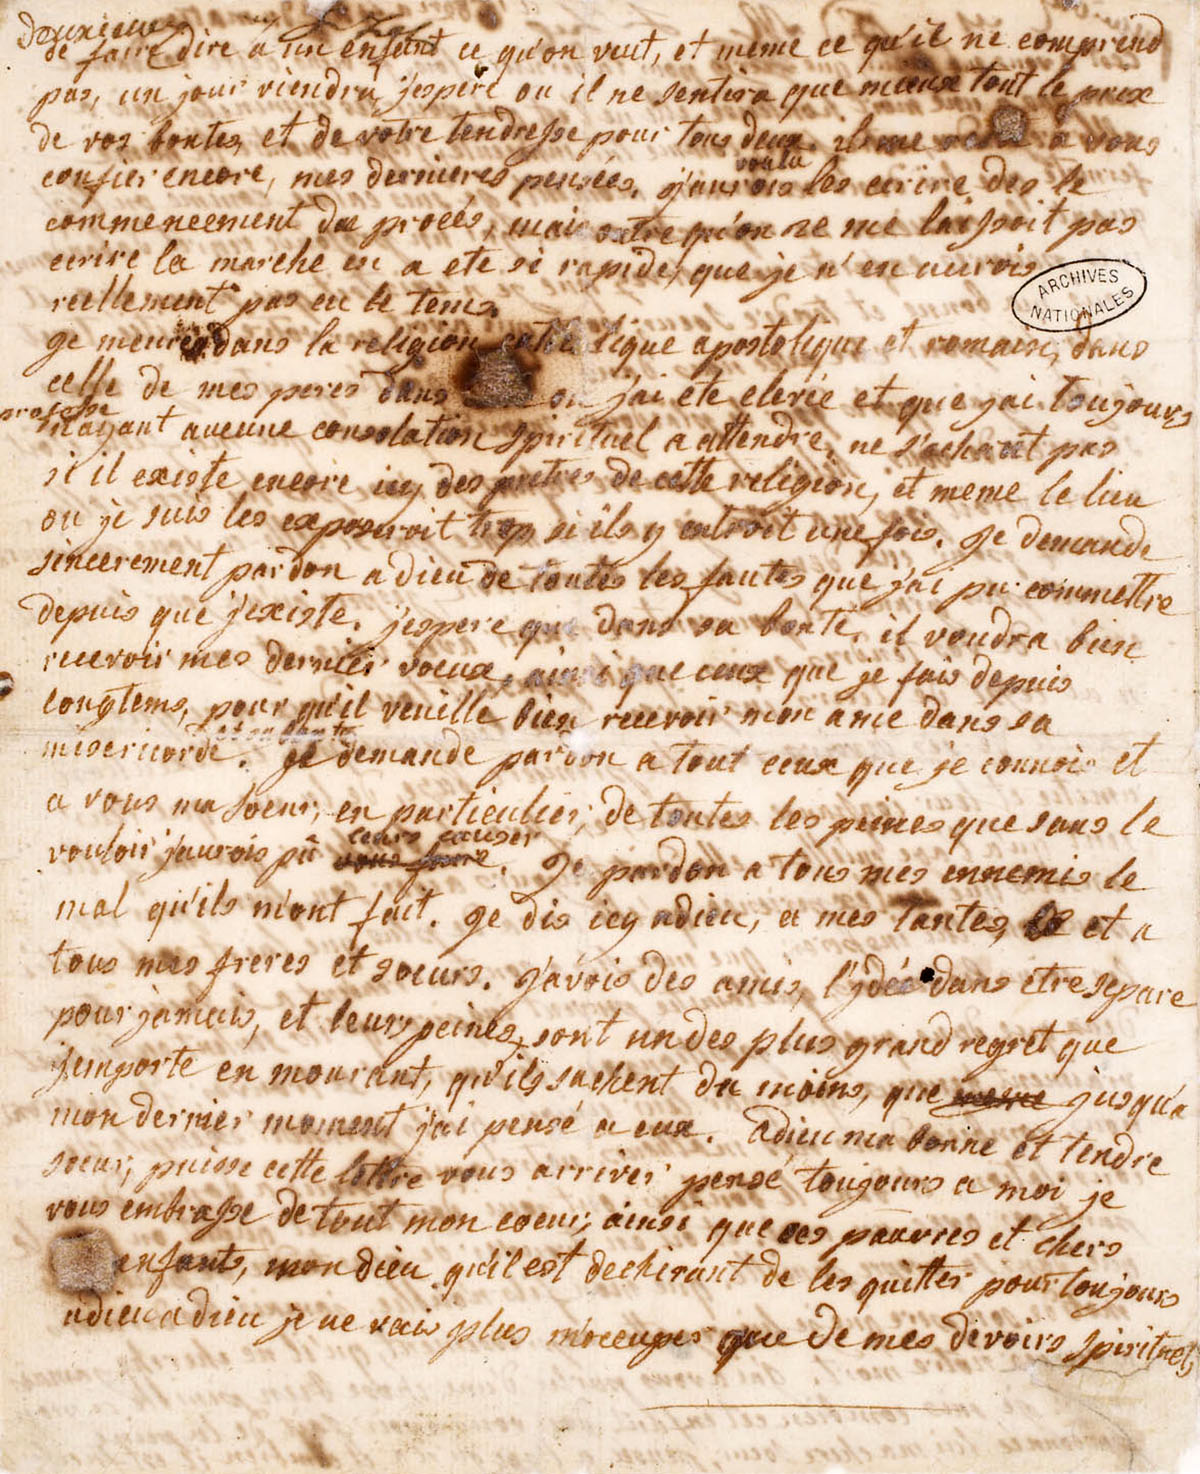 deuxieme
de faire dire a un enfant ce qu'on veut, et meme ce qu'il ne comprend
pas, un jour viendra j'espere ou il ne sentira que mieux tout le prix
de vos bontes, et de votre tendresse pour tous deux. il me reste a vous
confier encore, mes dernieres pensées. j'aurois voulu les ecrire des le
commencement du procés, mais outre qu'on ne me laissoit pas
ecrire la marche en a ete si rapide, que je n'en aurois
reellement pas eu le tems.
ARCHIVES
NATIONALES
je meurs dans la religion catholique apostolique et romaine, dans
celle de mes peres dans où j'ai ete elevée et que j'ai toujours
professé n'ayant aucune consolation spirituel a attendre, ne sachant pas
si il existe encore icy des pretres de cette religion, et meme le lieu
ou je suis les exposeroit trop si ils y entroit une fois. je demande
sincerement pardon a dieu de toutes les fautes que j'ai pu commettre
depuis que j'existe. j'espere que dans sa bonté. il voudra bien
recevoir mes dernier voeux, ainsi que ceux que je fais depuis
longtems, pour qu'il veuille bien recevoir mon ame dans sa
misericorde et sa bonté. je demande pardon a tout ceux que je connois et
a vous ma soeur, en particulier, de toutes les peines que sans le
vouloir j'aurois pû vous faire leurs causer. je pardon a tous mes ennemis le
mal qu'ils m'ont fait. je dis icy adieu, a mes tantes, et a
tous mes freres et soeurs. j'avois des amis, l'idée dans etre separe
pour jamais, et leurs peines, sont un des plus grand regret que
j'emporte en mourant, qu'ils sachent du moins, que jusqu'a
mon dernier moment j'ai pensé a eux. adieu ma bonne et tendre
soeur, puisse cette lettre vous arriver pensé toujours a moi je
vous embrasse de tout mon coeur, ainsi que ces pauvres et chers
enfants, mon dieu qu'il est dechirant de les quitter pour toujours
adieu adieu je ne vais plus m'occuper que de mes devoirs spirituels